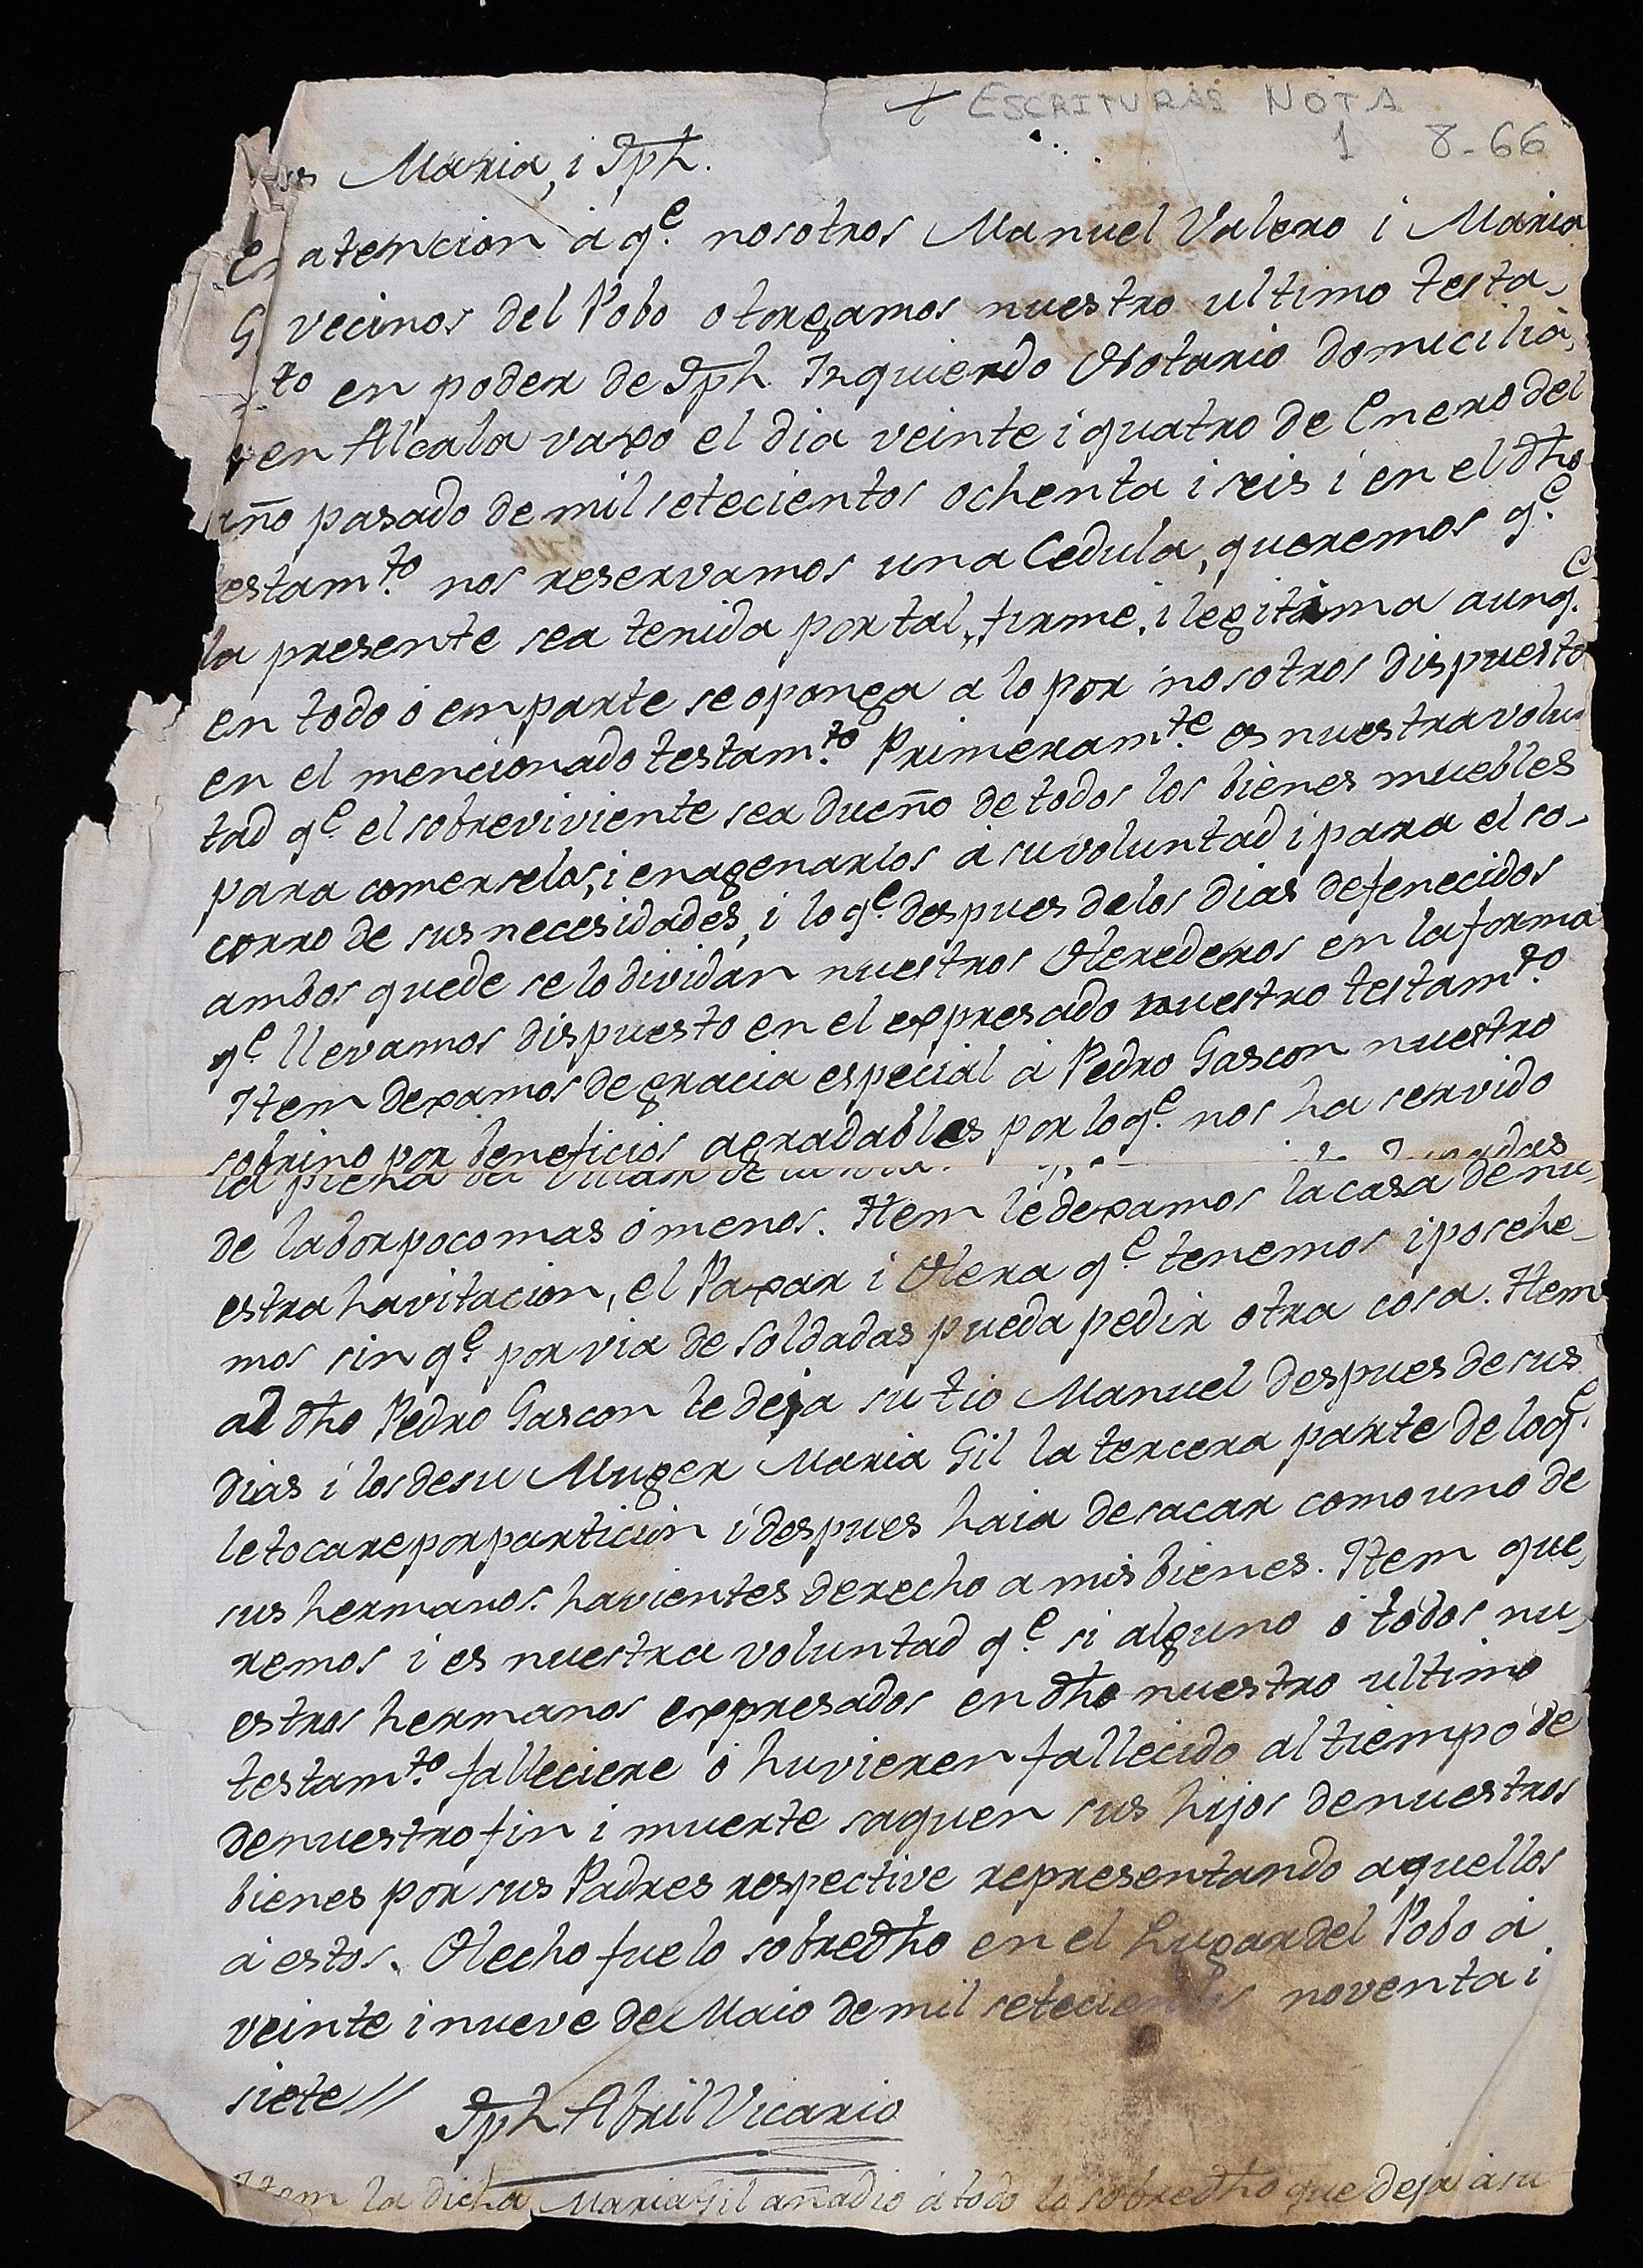 + ESCRITURAS NOTA
1 8-66
Maria, i Jph.
En atencion à q.e nosotros Manuel Valero i Maria
G vecinos del Pobo otorgamos nuestro ultimo testa-
to en poder de Jph. Inquierdo Notario domicilia,
en Alcala vaxo el dia veinte i quatro de Enero del
año pasado de mil setecientos ochenta i seis i en el dho
estam.to nos reservamos una Cedula, queremos q.e
la presente sea tenida por tal, firme, i legitima aunq.e
en todo ò en parte se oponga a lo por nosotros dispuesto
en el mencionado testam.to Primeram.te es nuestra volun
tad q.e el sobreviviente sea dueño de todos los bienes muebles
para comerselos, i enagenarlos à su voluntad i para el so-
corro de sus necesidades, i lo q.e despues de los dias defenecidos
ambos quede se lo dividan nuestros Herederos en la forma
q.e llevamos dispuesto en el expresado nuestro testam.to
Item dexamos de gracia especial à Pedro Gascon nuestro
sobrino por beneficios agradables por lo q.e nos ha servido
la
de labor poco mas ò menos. Item le dexamos la casa de nu,
estra havitacion, el Paxar i Hera q.e tenemos i posehe-
mos sin q.e por via de soldadas pueda pedir otra cosa. Item
al dho Pedro Gascon le deja su tio Manuel despues de sus
dias i los de su Muger Maria Gil la tercera parte de lo q.e
le tocare por particion i despues haia de sacar como uno de
sus hermanos havientes derecho a mis bienes. Item que,
remos i es nuestra voluntad q.e si alguno ò todos nu,
estros hermanos expresados en dho nuestro ultimo
testam.to falleciere ò huvieren fallecido al tiempo de
de nuestro fin i muerte saquen sus hijos de nuestros
bienes por sus Padres respective representando aquellos
à estos. Hecho fue lo sobredho en el Lugar del Pobo à
veinte i nueve de Maio de mil setecientos noventa i
siete //
Jph Abril Vicario
Item la dicha Maria Gil añadio à todo lo sobredho que deja à su